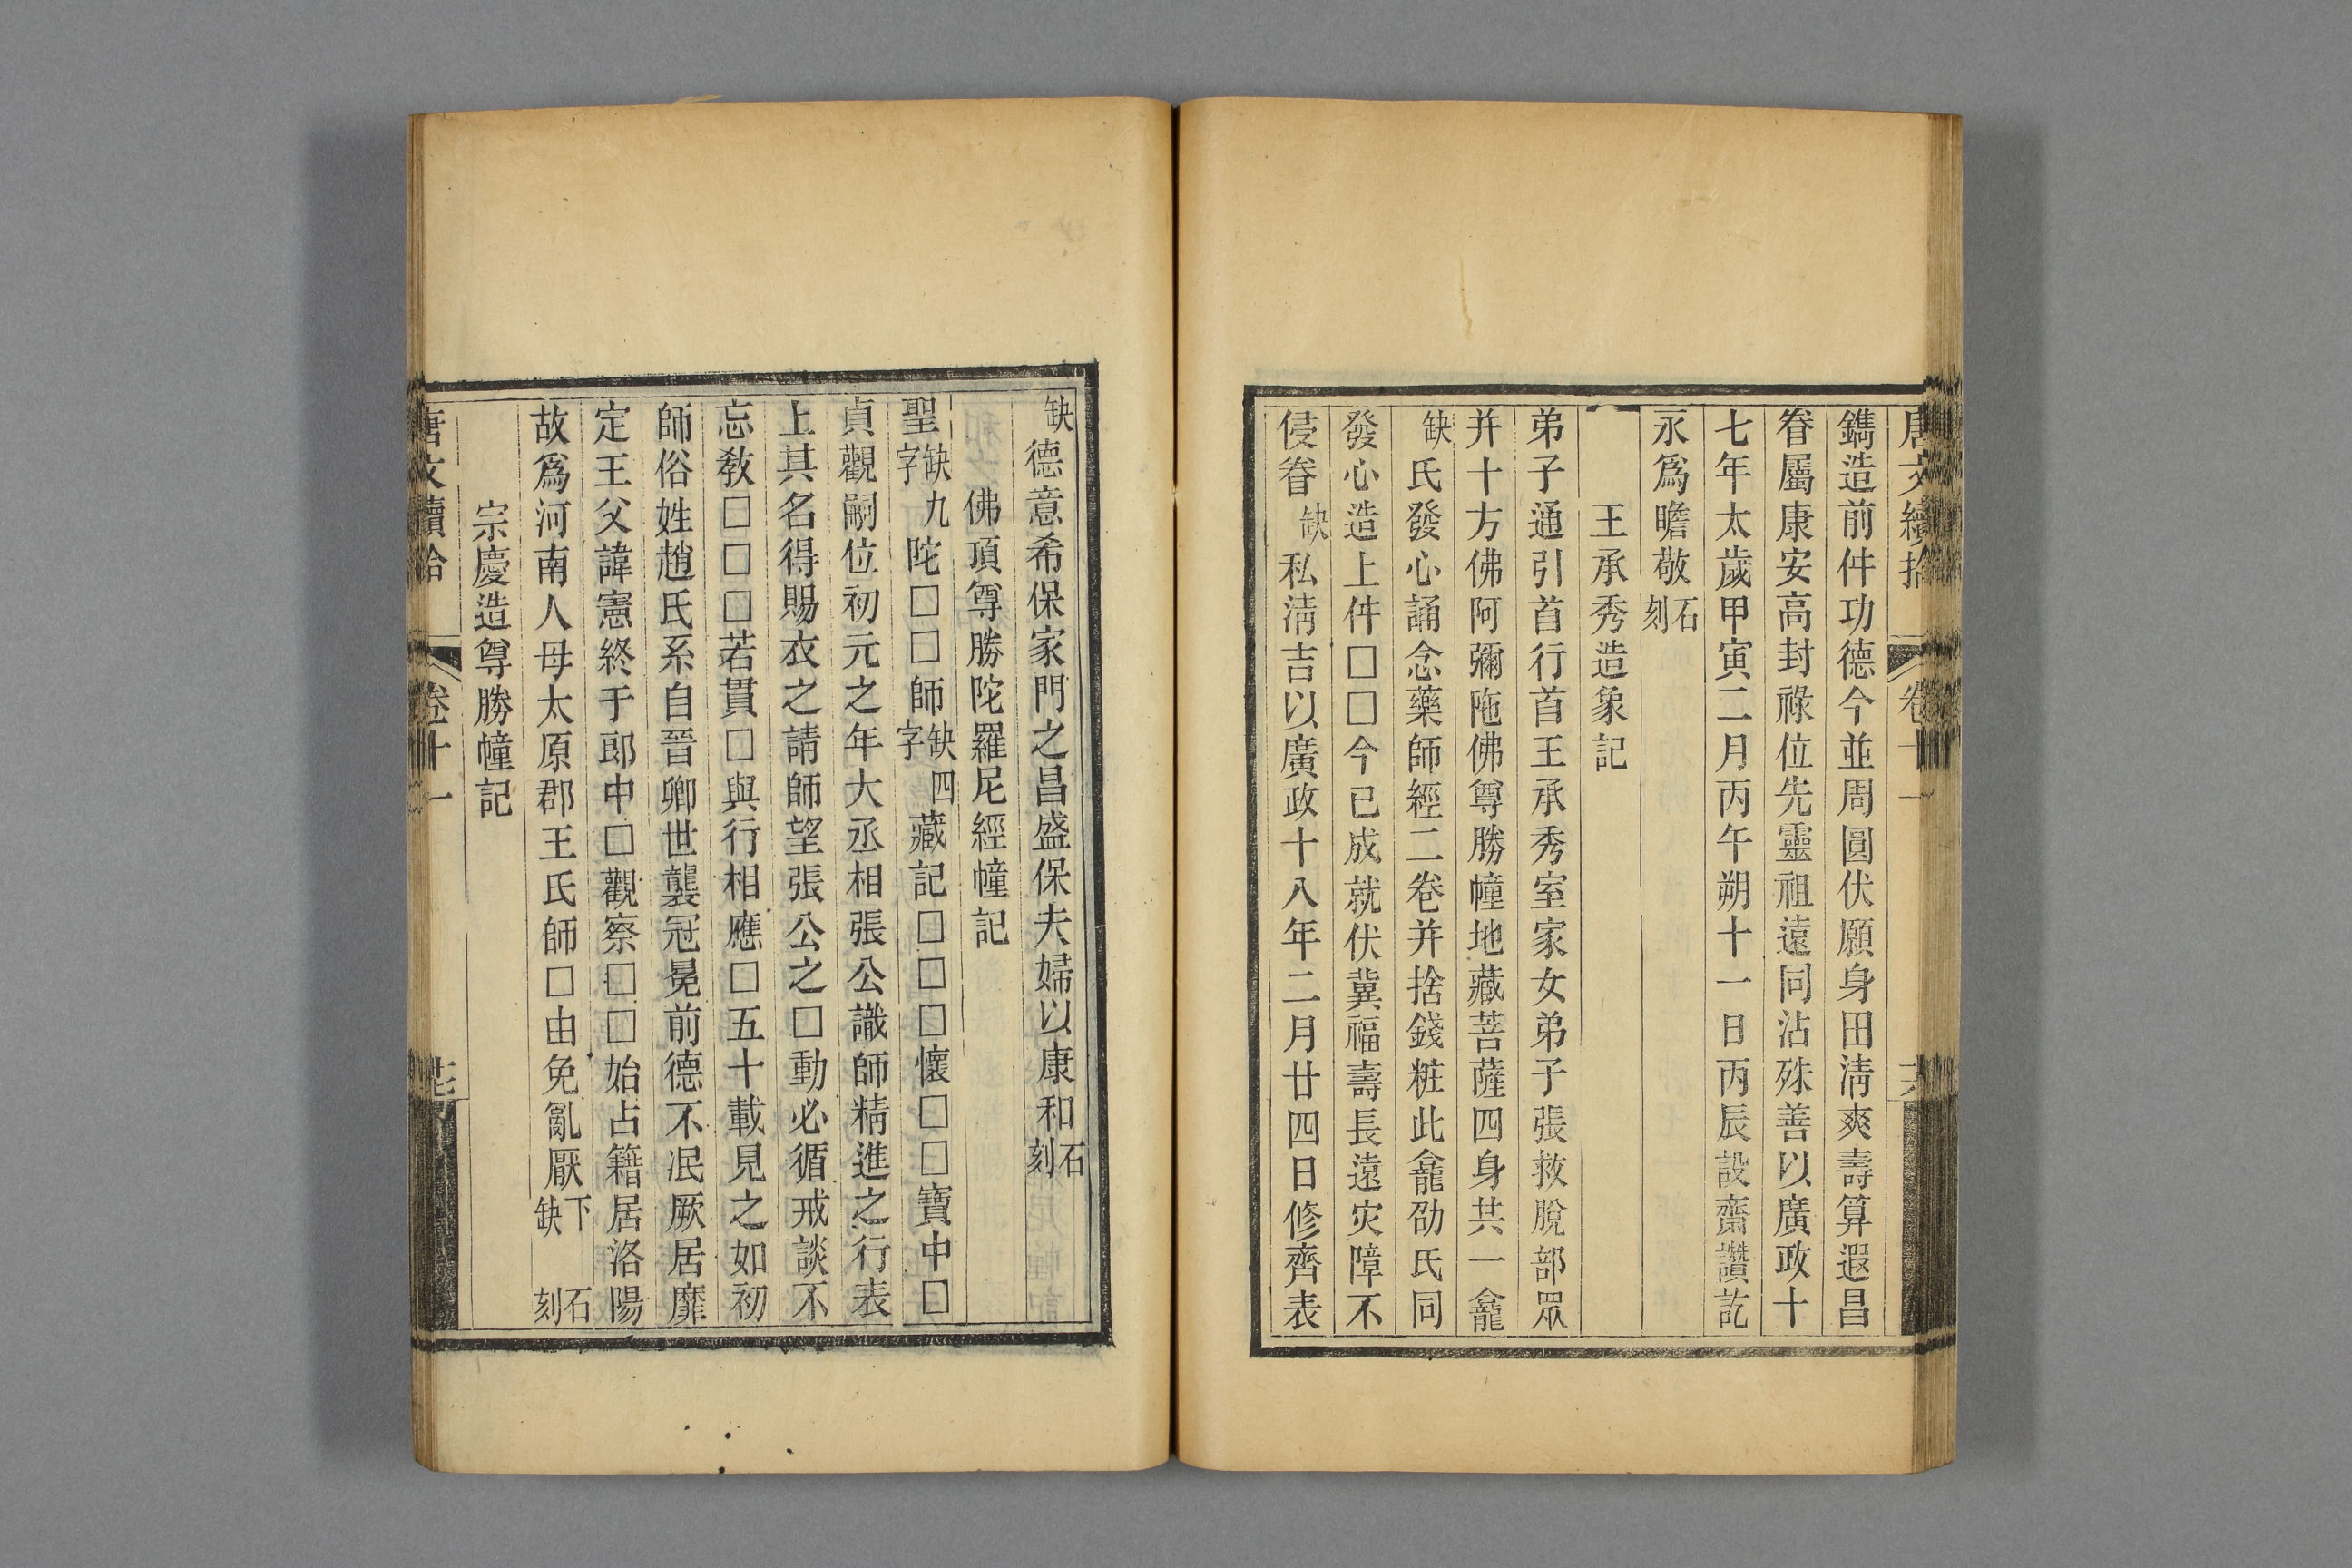 唐文續拾 卷十一
鐫造前件功德今並周圓伏願身田淸爽壽算遐昌
眷屬康安高封祿位先靈祖遠同沾殊善以廣政十
七年太歲甲寅二月丙午朔十一日丙辰設齋讚訖
永爲瞻敬石刻
王承秀造象記
弟子通引首行首王承秀室家女弟子張救脫部眾
并十方佛阿彌陁佛尊勝幢地藏菩薩四身共一龕
缺氏發心誦念藥師經二卷并捨錢粧此龕劭氏同
發心造上件□□今已成就伏冀福壽長遠灾障不
侵眷缺私淸吉以廣政十八年二月廿四日修齊表
缺德意希保家門之昌盛保夫婦以康和石刻
佛頂尊勝陀羅尼經幢記
聖缺九字陀□□師缺四字藏記□□□懷□□寶中□
貞觀嗣位初元之年大丞相張公識師精進之行表
上其名得賜衣之請師望張公之□動必循戒談不
忘敎□□□若貫□與行相應□五十載見之如初
師俗姓趙氏系自晉卿世襲冠冕前德不泯厥居靡
定王父諱憲終于郎中□觀察□□始占籍居洛陽
故爲河南人母太原郡王氏師□由免亂厭下缺 石刻
宗慶造尊勝幢記
唐文續拾 卷十一